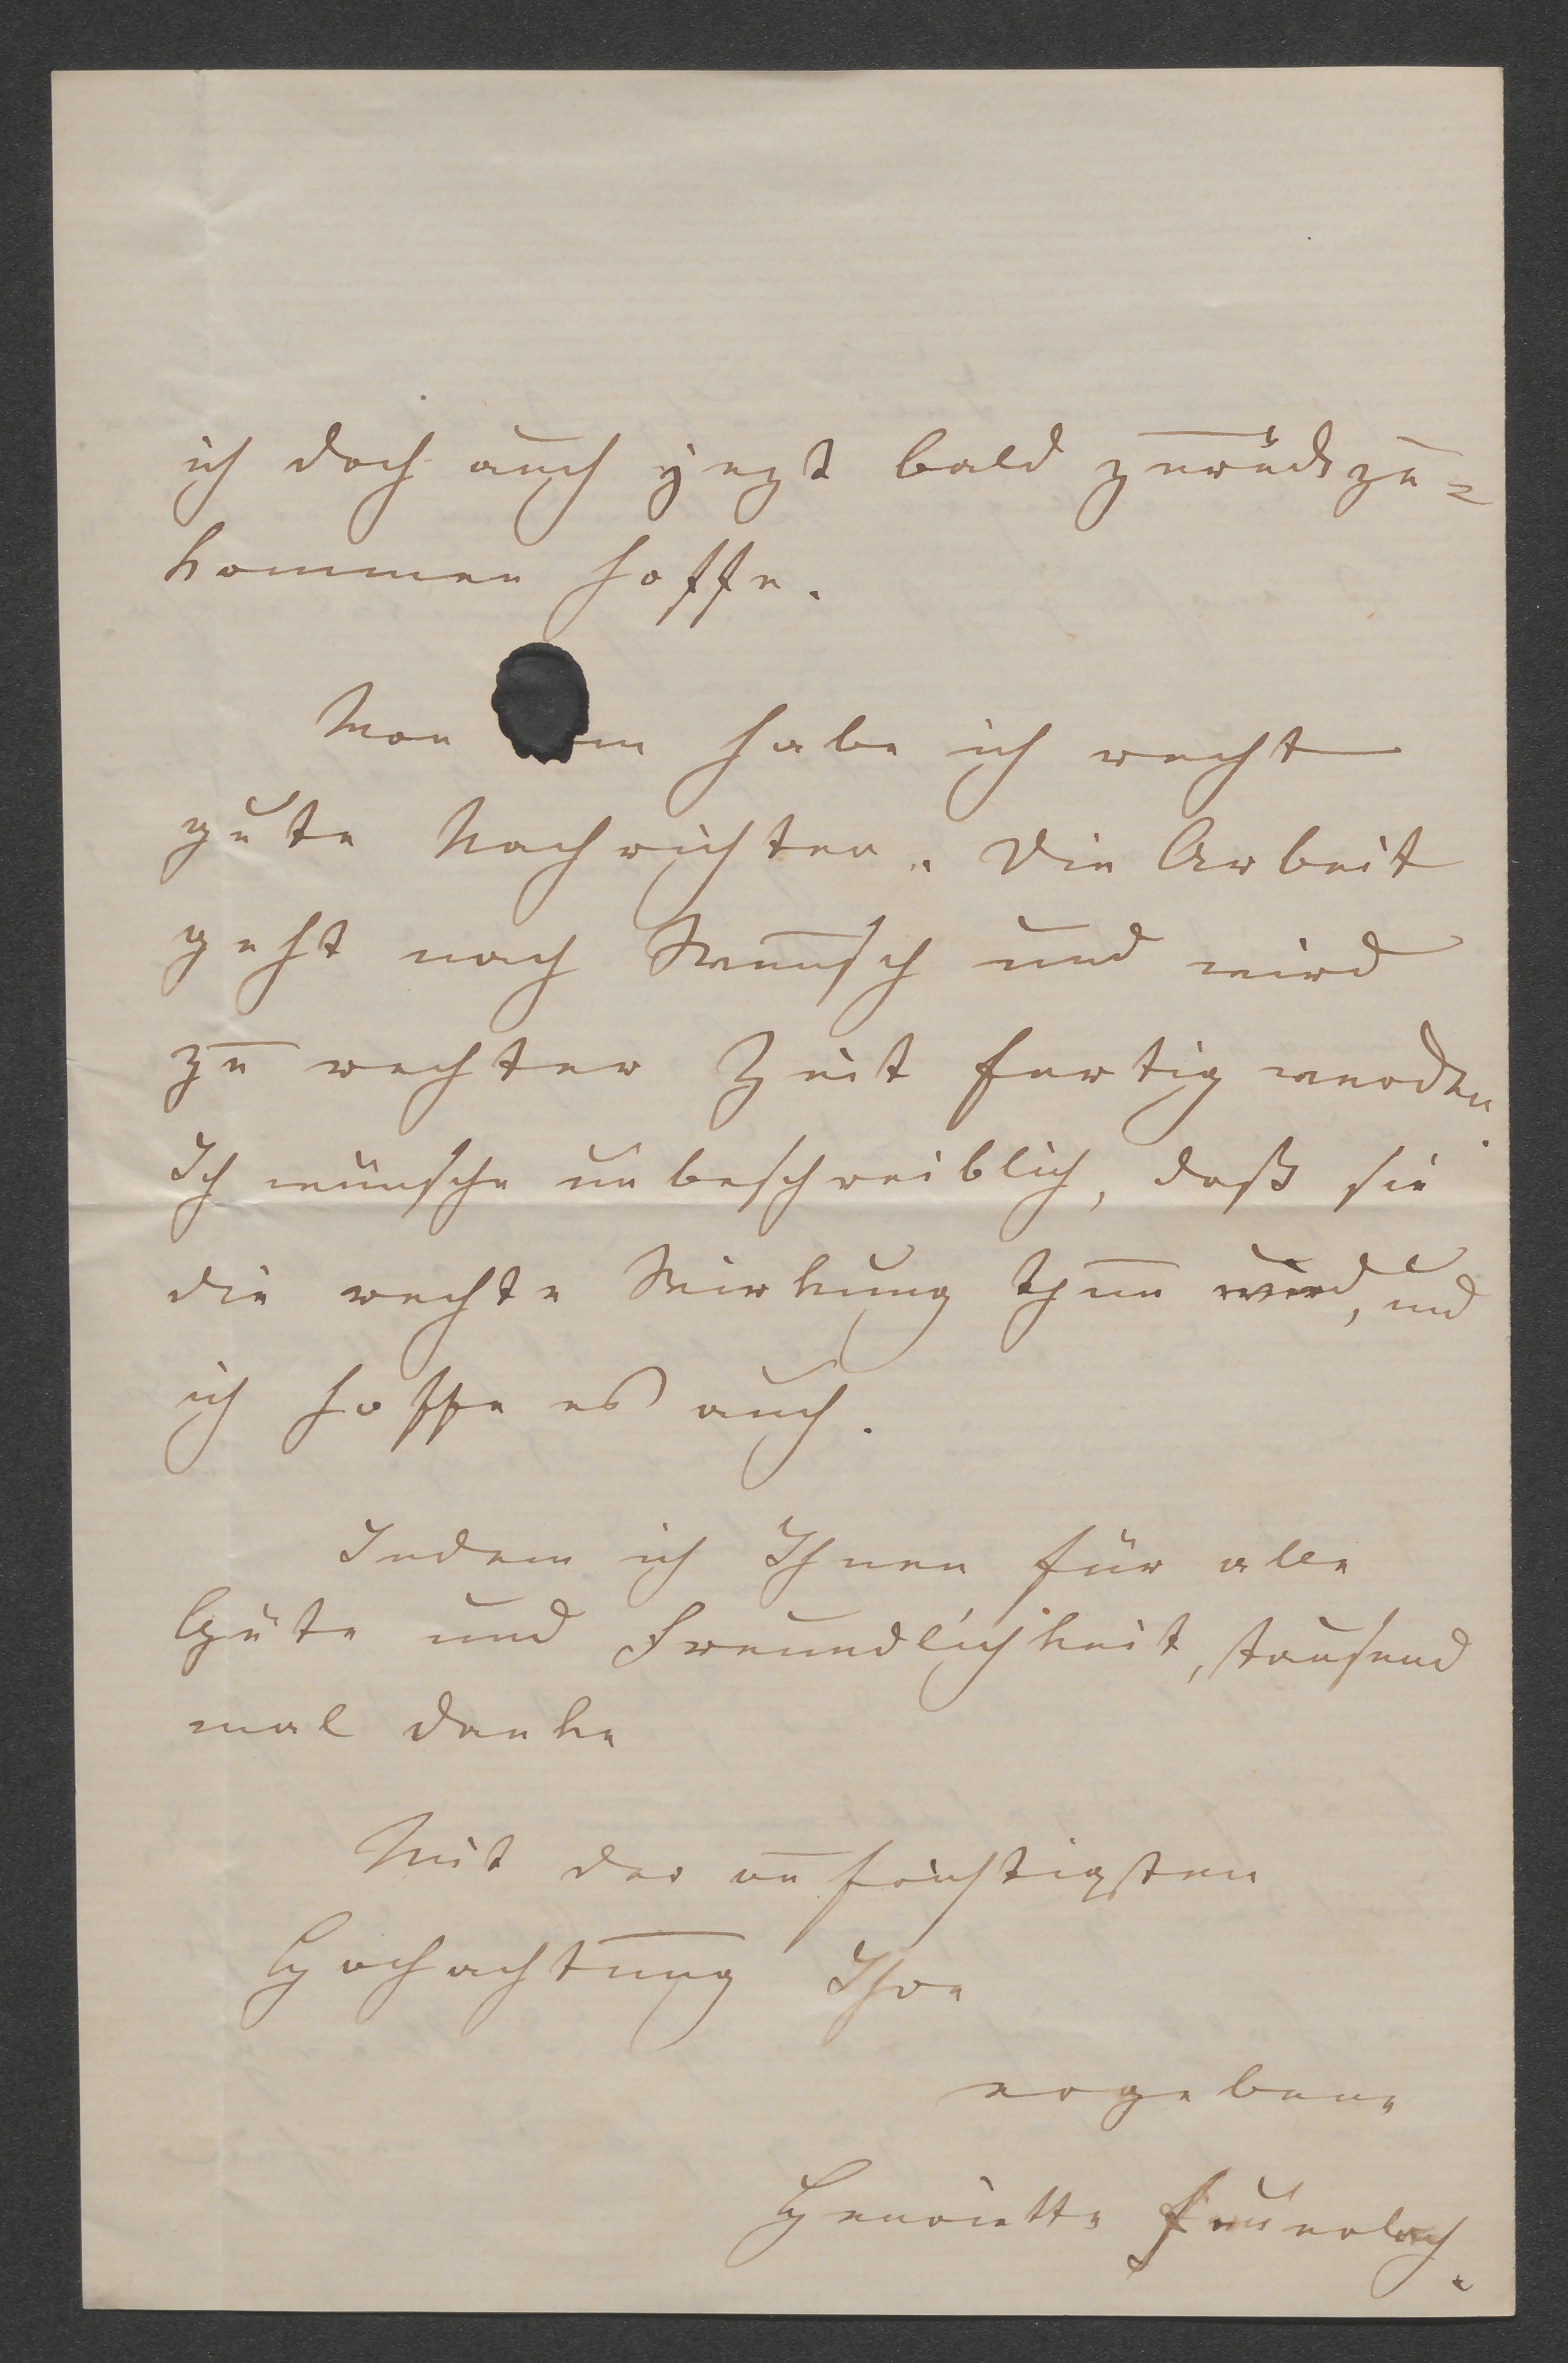 ich doch auch jezt bald zurückzu=
kommen hoffe.
Von m habe ich recht
gute Nachrichten. Die Arbeit
geht nach Wunsch und wird
zu rechter Zeit fertig werden.
Ich wünsche unbeschreiblich, daß sie
die rechte Wirkung thun wird, und
ich hoffe es auch.
Indem ich Ihnen für alle
Güte und Freundlichkeit, tausend
mal danke
Mit der aufrichtigsten
Hochachtung Ihre
ergebene
Henriette Feuerbach.